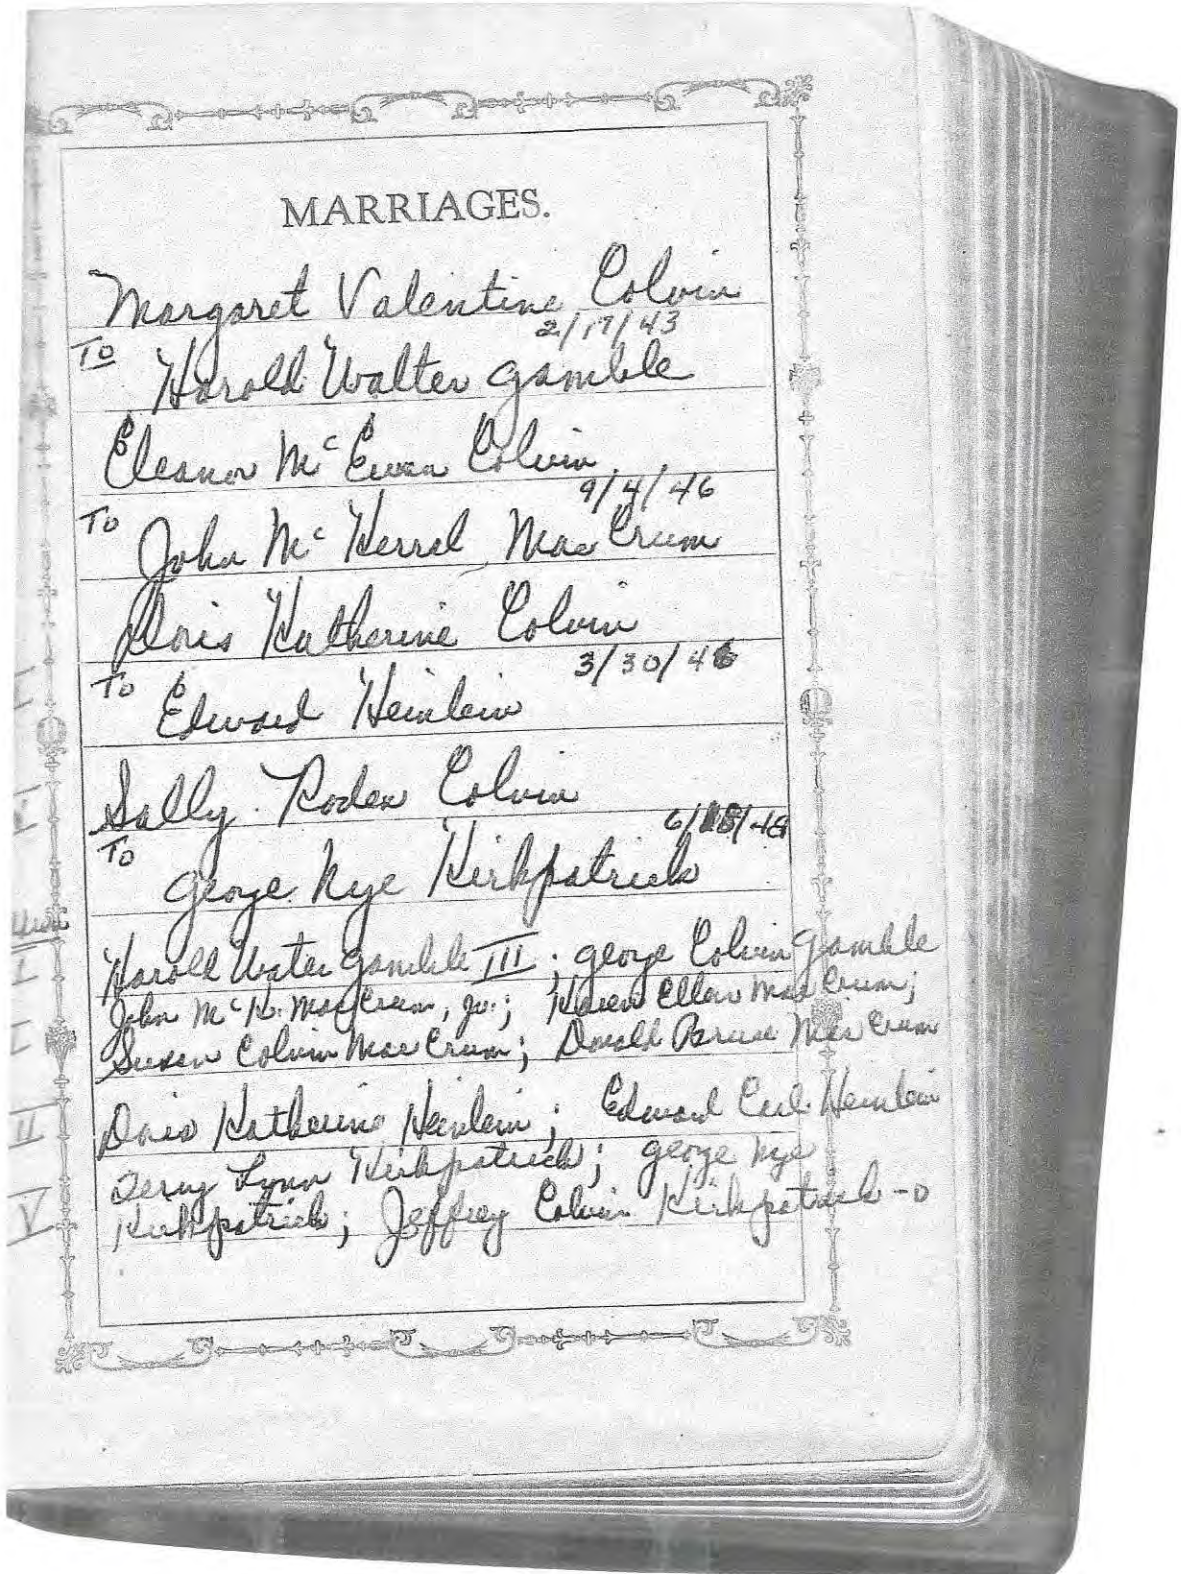 MARRIAGES.
Margaret Valentine Colvin
2/17/43
To Harold Walter Gamble
Eleanor McEwen Colvin
9/4/46
To John McKerrel MacCrum
Doris Katherine Colvin
3/30/46
To Edward Heinlein
Sally Roden Colvin
6/18/48
To George Nye Kirkpatrick
Harold Water Gamble III; George Colvin Gamble
John McK. MacCrum, Jr.; Karen Ellen MacCrum;
Susan Colvin MacCrum; Donald Bruce MacCrum
Doris Katherine Heinlein; Edward Heinlein
Lynn Kirkpatrick; George Nye
Kirkpatrick; Jeffrey Colvin Kirkpatrick